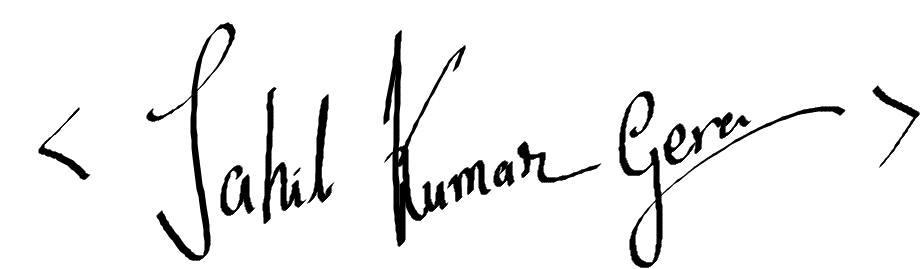 < Sahil Kumar Gera >